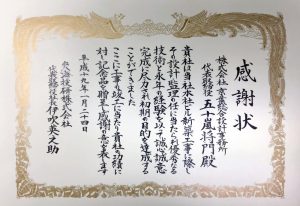 感謝状
株式会社 京葉総合設計事務所
代表取締役 五十嵐将門殿
貴社は当社本社ビル新築工事に際し
その設計監理の任に当たられ優秀なる
技術と永年の経験を以て誠心誠意
完成に尽力され初期の目的を達成する
ことができました
ここに工事の竣工に当たり貴社の功績に
対し記念品を贈呈し感謝の意を表します
平成十九年一月二十四日
東海技研株式会社
代表取締役社長 伊吹英之助